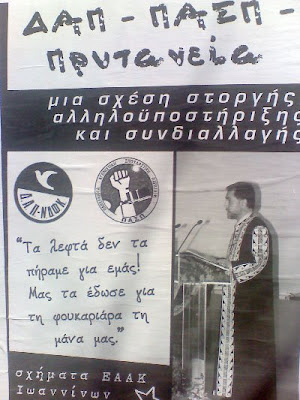 ΔΑΠ - ΠΑΣΠ -
πρυτανεία
μια σχέση στοργής
αλληλοϋποστήριξης
και συνδιαλλαγής
ΔΑΠ-ΝΔΦΚ
ΠΑΣΠ
"Τα λεφτά δεν τα
πήραμε για εμάς!
Μας τα έδωσε για
τη φουκαριάρα τη
μάνα μας,"
σχήματα ΕΑΑΚ
Ιωαννίνων